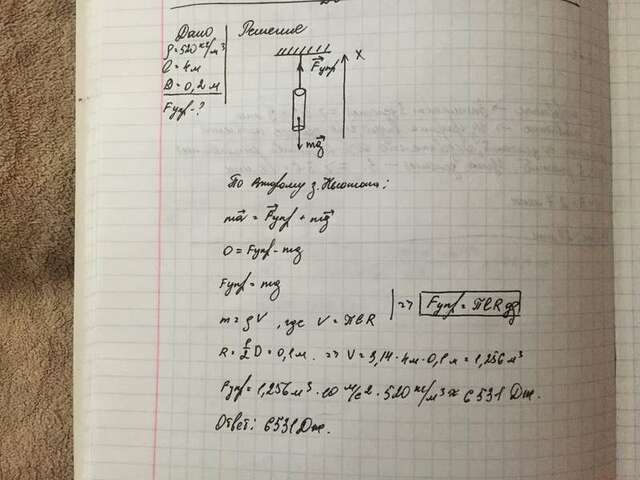 Дано
Решение
ρ = 520 кг/м³
ℓ = 4 м
D = 0,2 м
Fупр - ?
F⃗упр
X
mg⃗
По второму з. Ньютона:
ma⃗ = F⃗упр + mg⃗
0 = Fупр - mg
Fупр = mg
m = ρV, где V = πℓR
=> Fупр = πℓRρg
R = 1/2 D = 0,1 м. => V = 3,14 · 4 м · 0,1 м = 1,256 м³
Fупр = 1,256 м³ · 10 м/с² · 520 кг/м³ ≈ 6531 Дж.
Ответ: 6531 Дж.